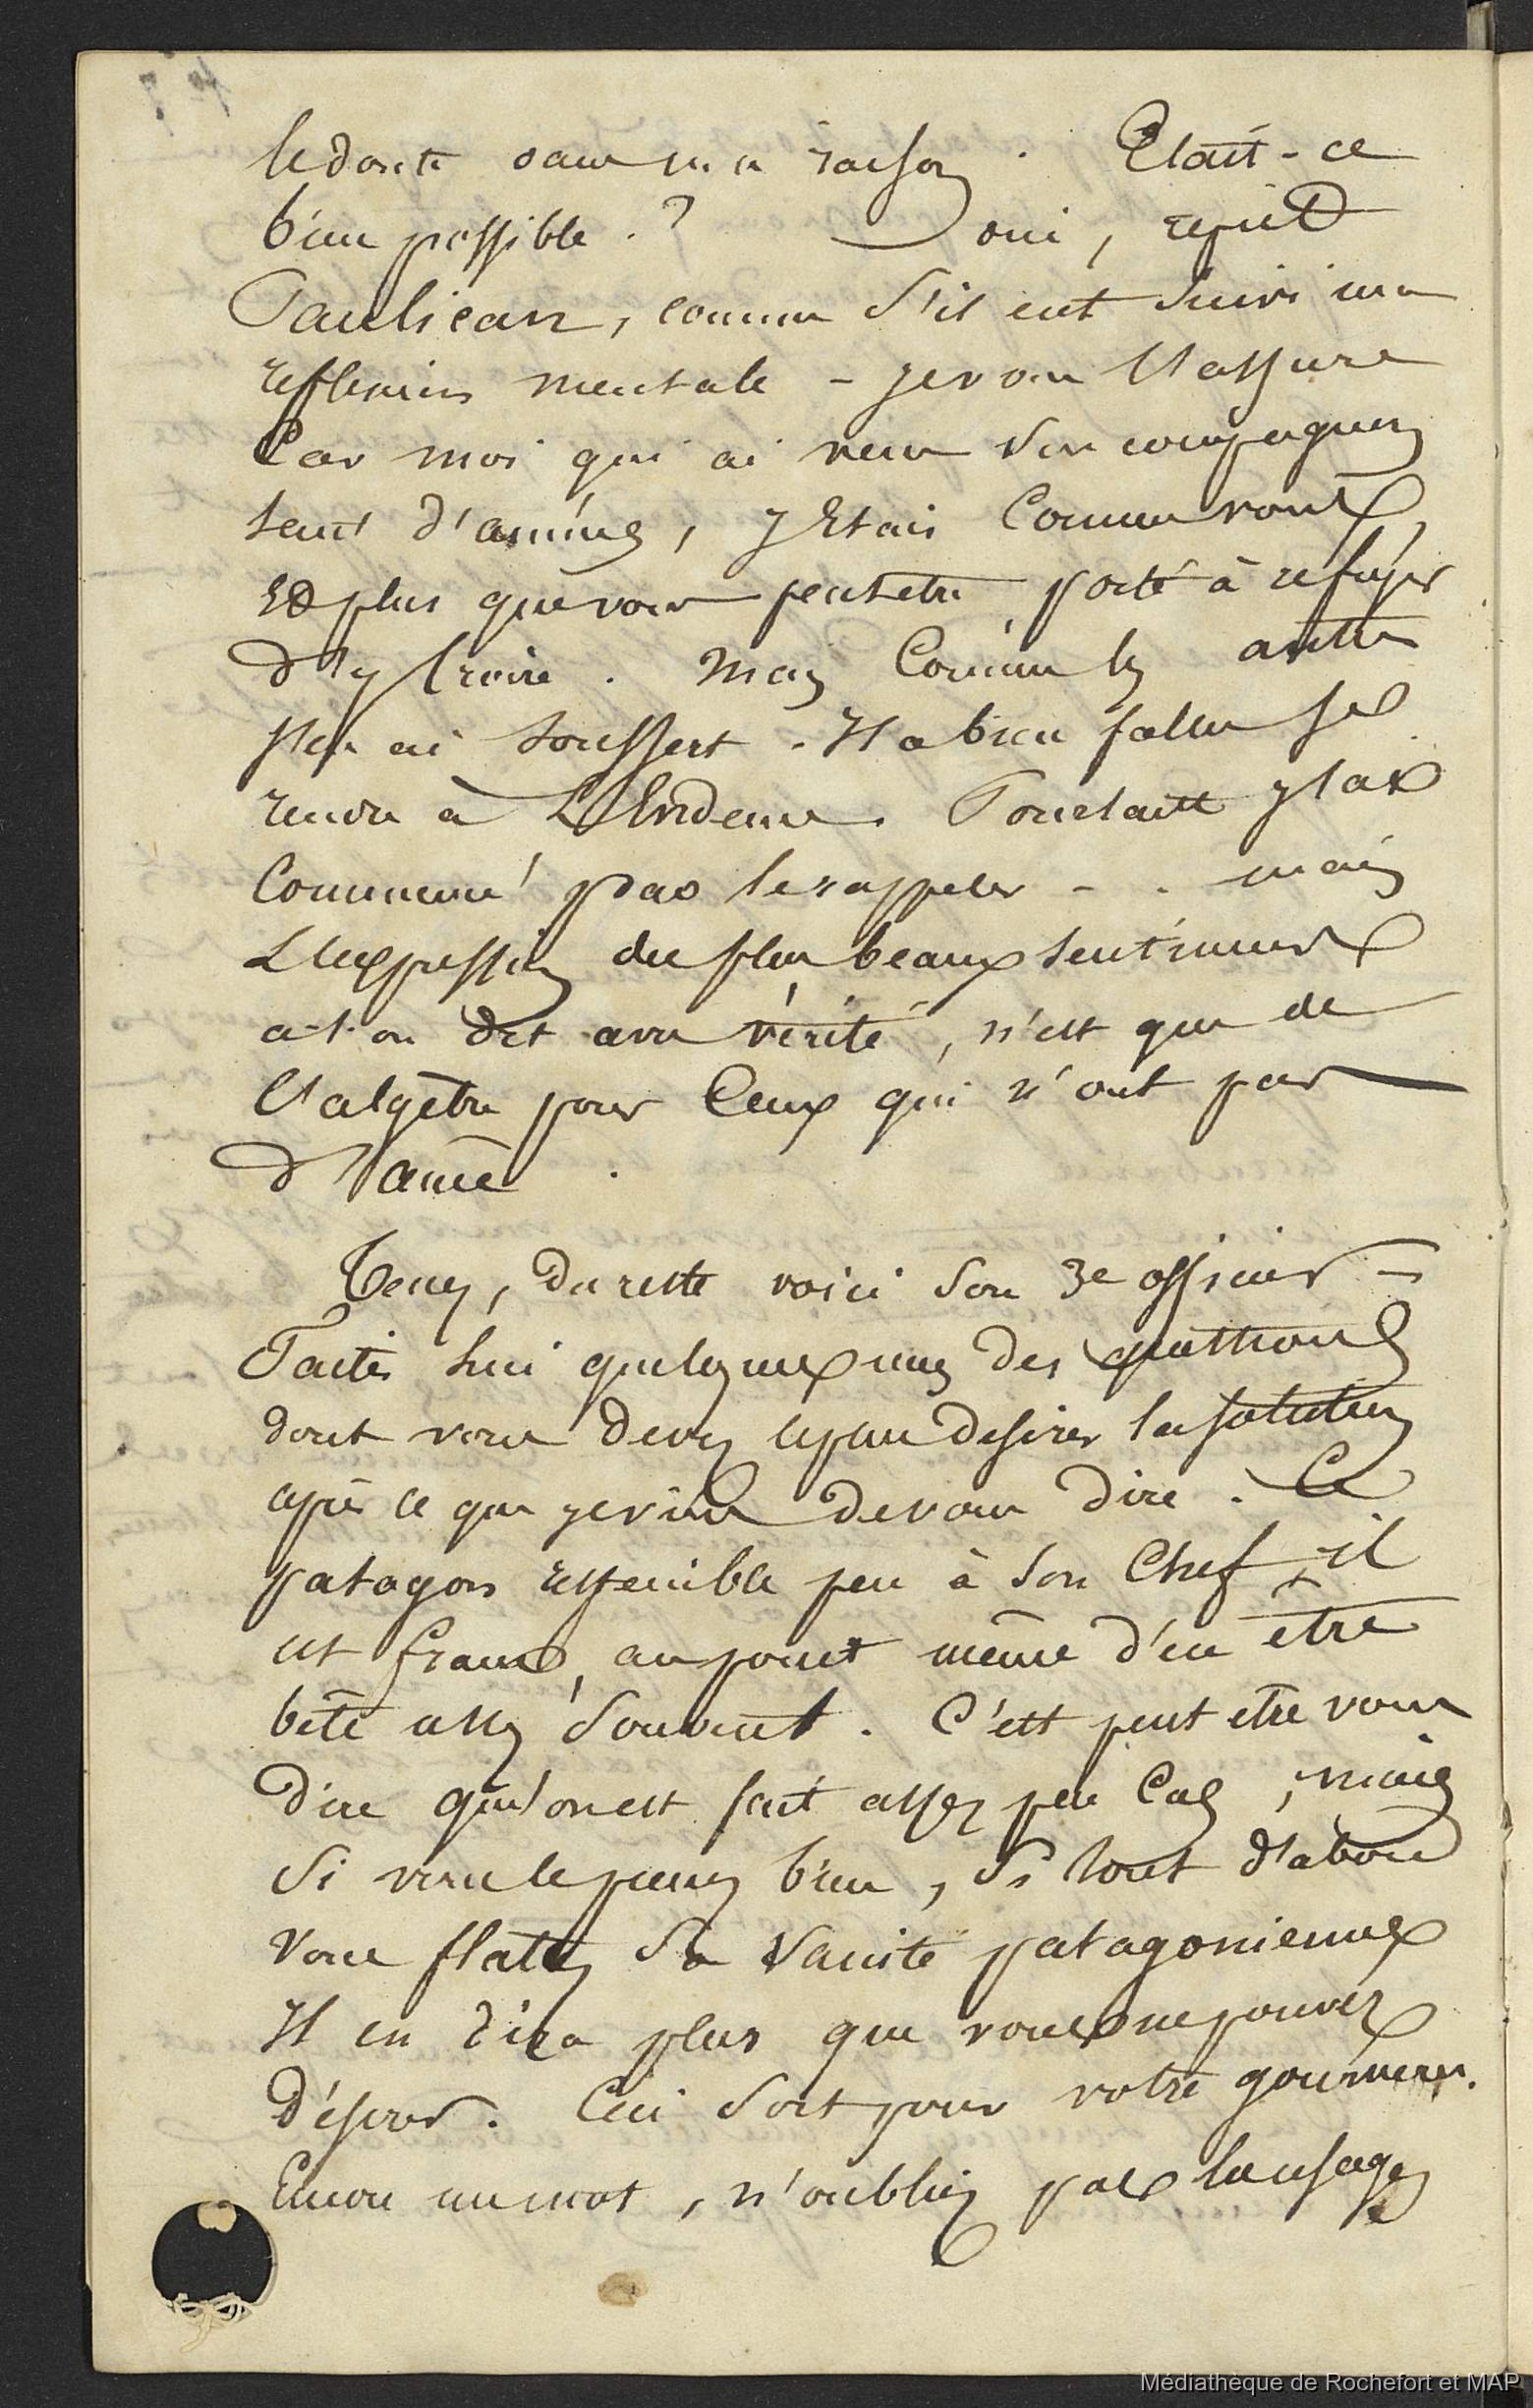 le doute dans ma raison. Etait-ce
bien possible.? Oui, reprit
Paulican, comme s'il eut suivi ma
reflexion mentale - je vous l'assure
Car moi qui ai vecu son compagnon
tant d'années, j'Etais Comme vous,
Et plus que vous peutetre porté à refuser
d'y Croire. Mais Comme les autres
j'en ai souffert. Il a bien fallu se
rendre à L'Evidence. Pourtant j'ai
Commencé pas le rappeler - . mais
L'expression des plus beaux sentiments
a-t-on dit avec vérité, n'est que de
l'algèbre pour Ceux qui n'ont pas
d'âme.
Tenez, du reste voici son 3e officier -
Faites lui quelques unes des questions
dont vous devez desirer la solution
après ce que je viens de vous dire. Ce
patagon ressemble peu à son Chef, il
est franc, au point même d'en être
bête assez souvent. C'est peut etre vous
dire qu'on en fait assez peu Cas, mais
si vous le prenez bien, si tout d'abord
vous flatez sa vanité patagonienne
Il en dira plus que vous ne pouvez
désirer. Ceci soit pour votre gouverne.
Encore un mot, n'oubliez pas l'usage
Médiathèque de Rochefort et MAP